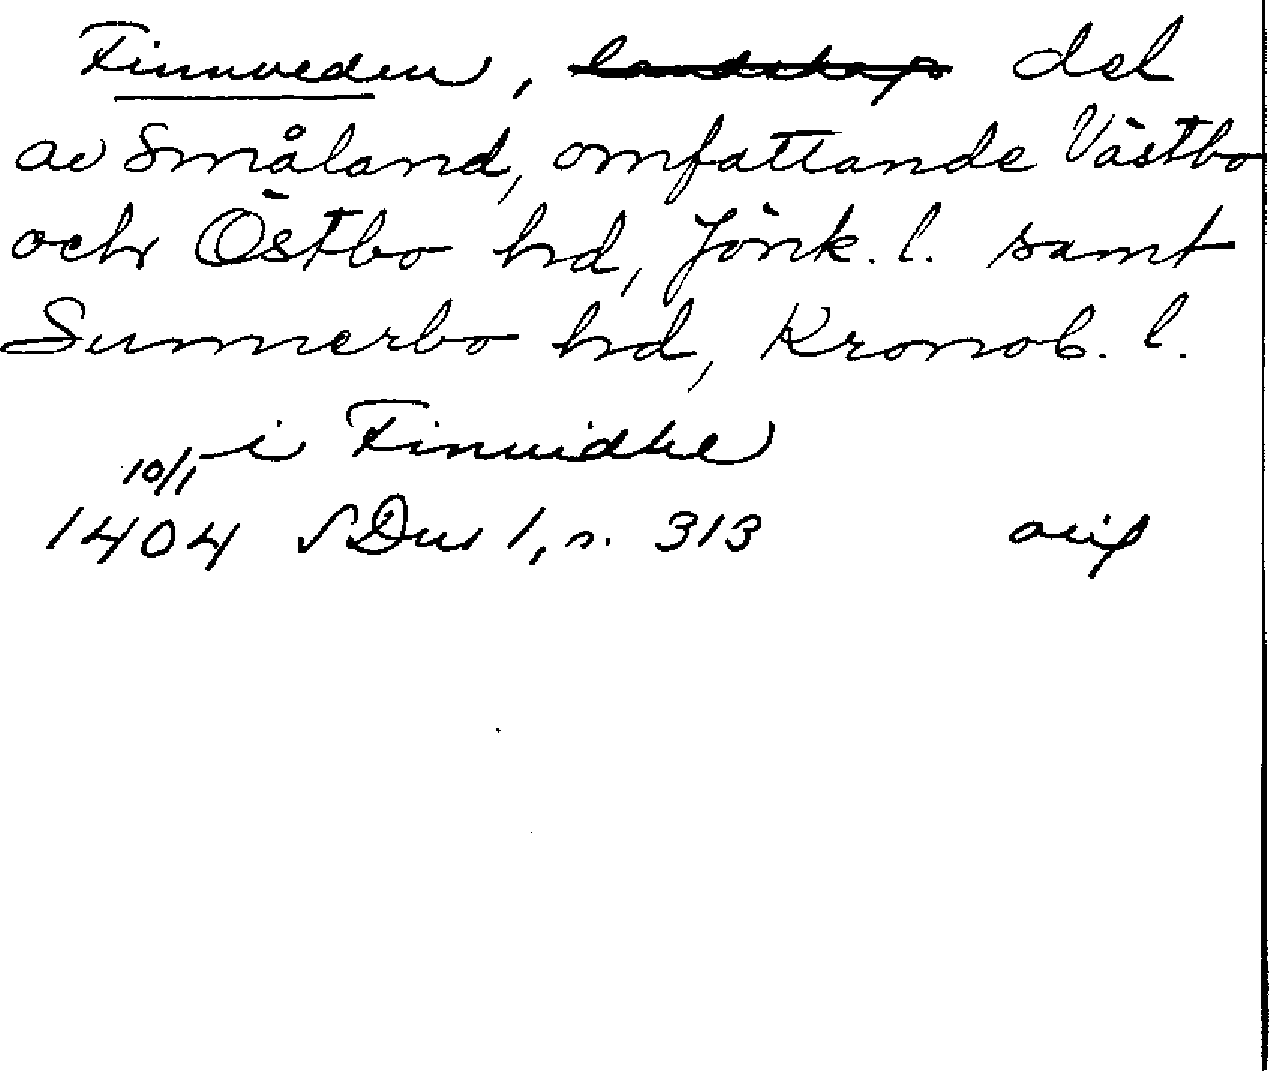 Finnveden, landskap del
av Småland, omfattande Västbo
och Östbo hd, Jönk. l. samt
Sunnerbo hd, Kronob. l.
i Finnidhe
10/1
1404 SDns 1, s. 313